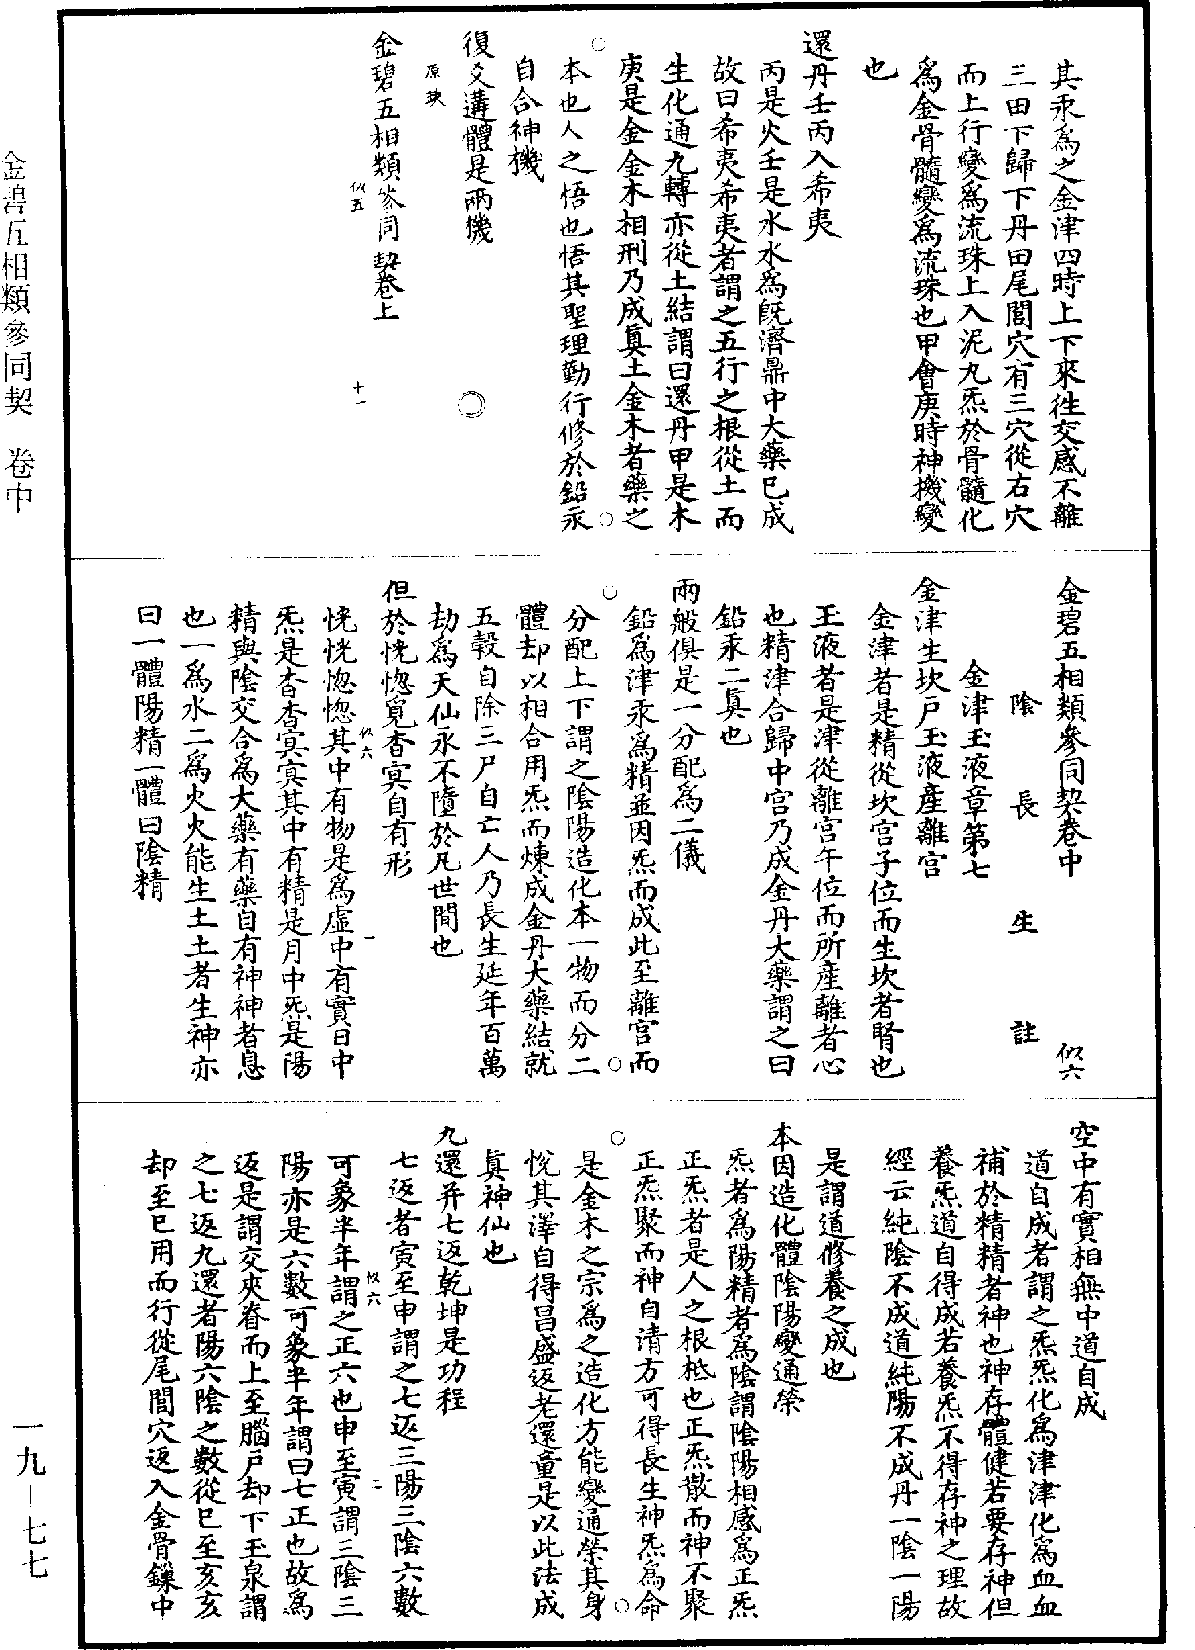 其汞爲之金津四時上下來往交感不離
三田下歸下丹田尾閭穴有三穴從右穴
而上行變爲流珠上入泥丸炁於骨髓化
爲金骨髓變爲流珠也甲會庚時神機變
也
還丹壬丙入希夷
丙是火壬是水水爲旣濟鼎中大藥已成
故曰希夷希夷者謂之五行之根從土而
生化通九轉亦從土結謂曰還丹甲是木
庚是金金木相刑乃成眞土金木者藥之
本也人之悟也悟其聖理勤行修於鉛汞
自合神機
復爻遘體是兩機
原缺
金碧五相類叅同契卷上
似五
十一
金碧五相類參同契卷中
似六
陰長生註
金津玉液章第七
金津生坎戶玉液產離宮
金津者是精從坎宮子位而生坎者腎也
玉液者是津從離宮午位而所產離者心
也精津合歸中宮乃成金丹大藥謂之曰
鉛汞二眞也
兩般俱是一分配爲二儀
鉛爲津汞爲精並因炁而成此至離宮而
分配上下謂之陰陽造化本一物而分二
體却以相合用炁而煉成金丹大藥結就
五穀自除三尸自亡人乃長生延年百萬
劫爲天仙永不墮於凡世間也
但於恍惚覓杳冥自有形
恍恍惚惚其中有物是爲虛中有實日中
炁是杳杳冥冥其中有精是月中炁是陽
精與陰交合爲大藥有藥自有神神者息
也一爲水二爲火火能生土土者生神亦
曰一體陽精一體曰陰精
似六
一
空中有實相無中道自成
道自成者謂之炁炁化爲津津化爲血血
補於精精者神也神存體健若要存神但
養炁道自得成若養炁不得存神之理故
經云純陰不成道純陽不成丹一陰一陽
是謂道修養之成也
本因造化體陰陽變通榮
炁者爲陽精者爲陰謂陰陽相感爲正炁
正炁者是人之根柢也正炁散而神不聚
正炁聚而神自清方可得長生神炁爲命
是金木之宗爲之造化方能變通榮其身
悅其澤自得昌盛返老還童是以此法成
眞神仙也
九還并七返乾坤是功程
七返者寅至申謂之七返三陽三陰六數
可象半年謂之正六也申至寅謂三陰三
陽亦是六數可象半年謂曰七正也故爲
返是謂交夾脊而上至腦戶却下玉泉謂
之七返九還者陽六陰之數從巳至亥亥
却至巳用而行從尾閭穴返入金骨鏁中
似六
二
金碧五相類參同契 卷中
一九—七七